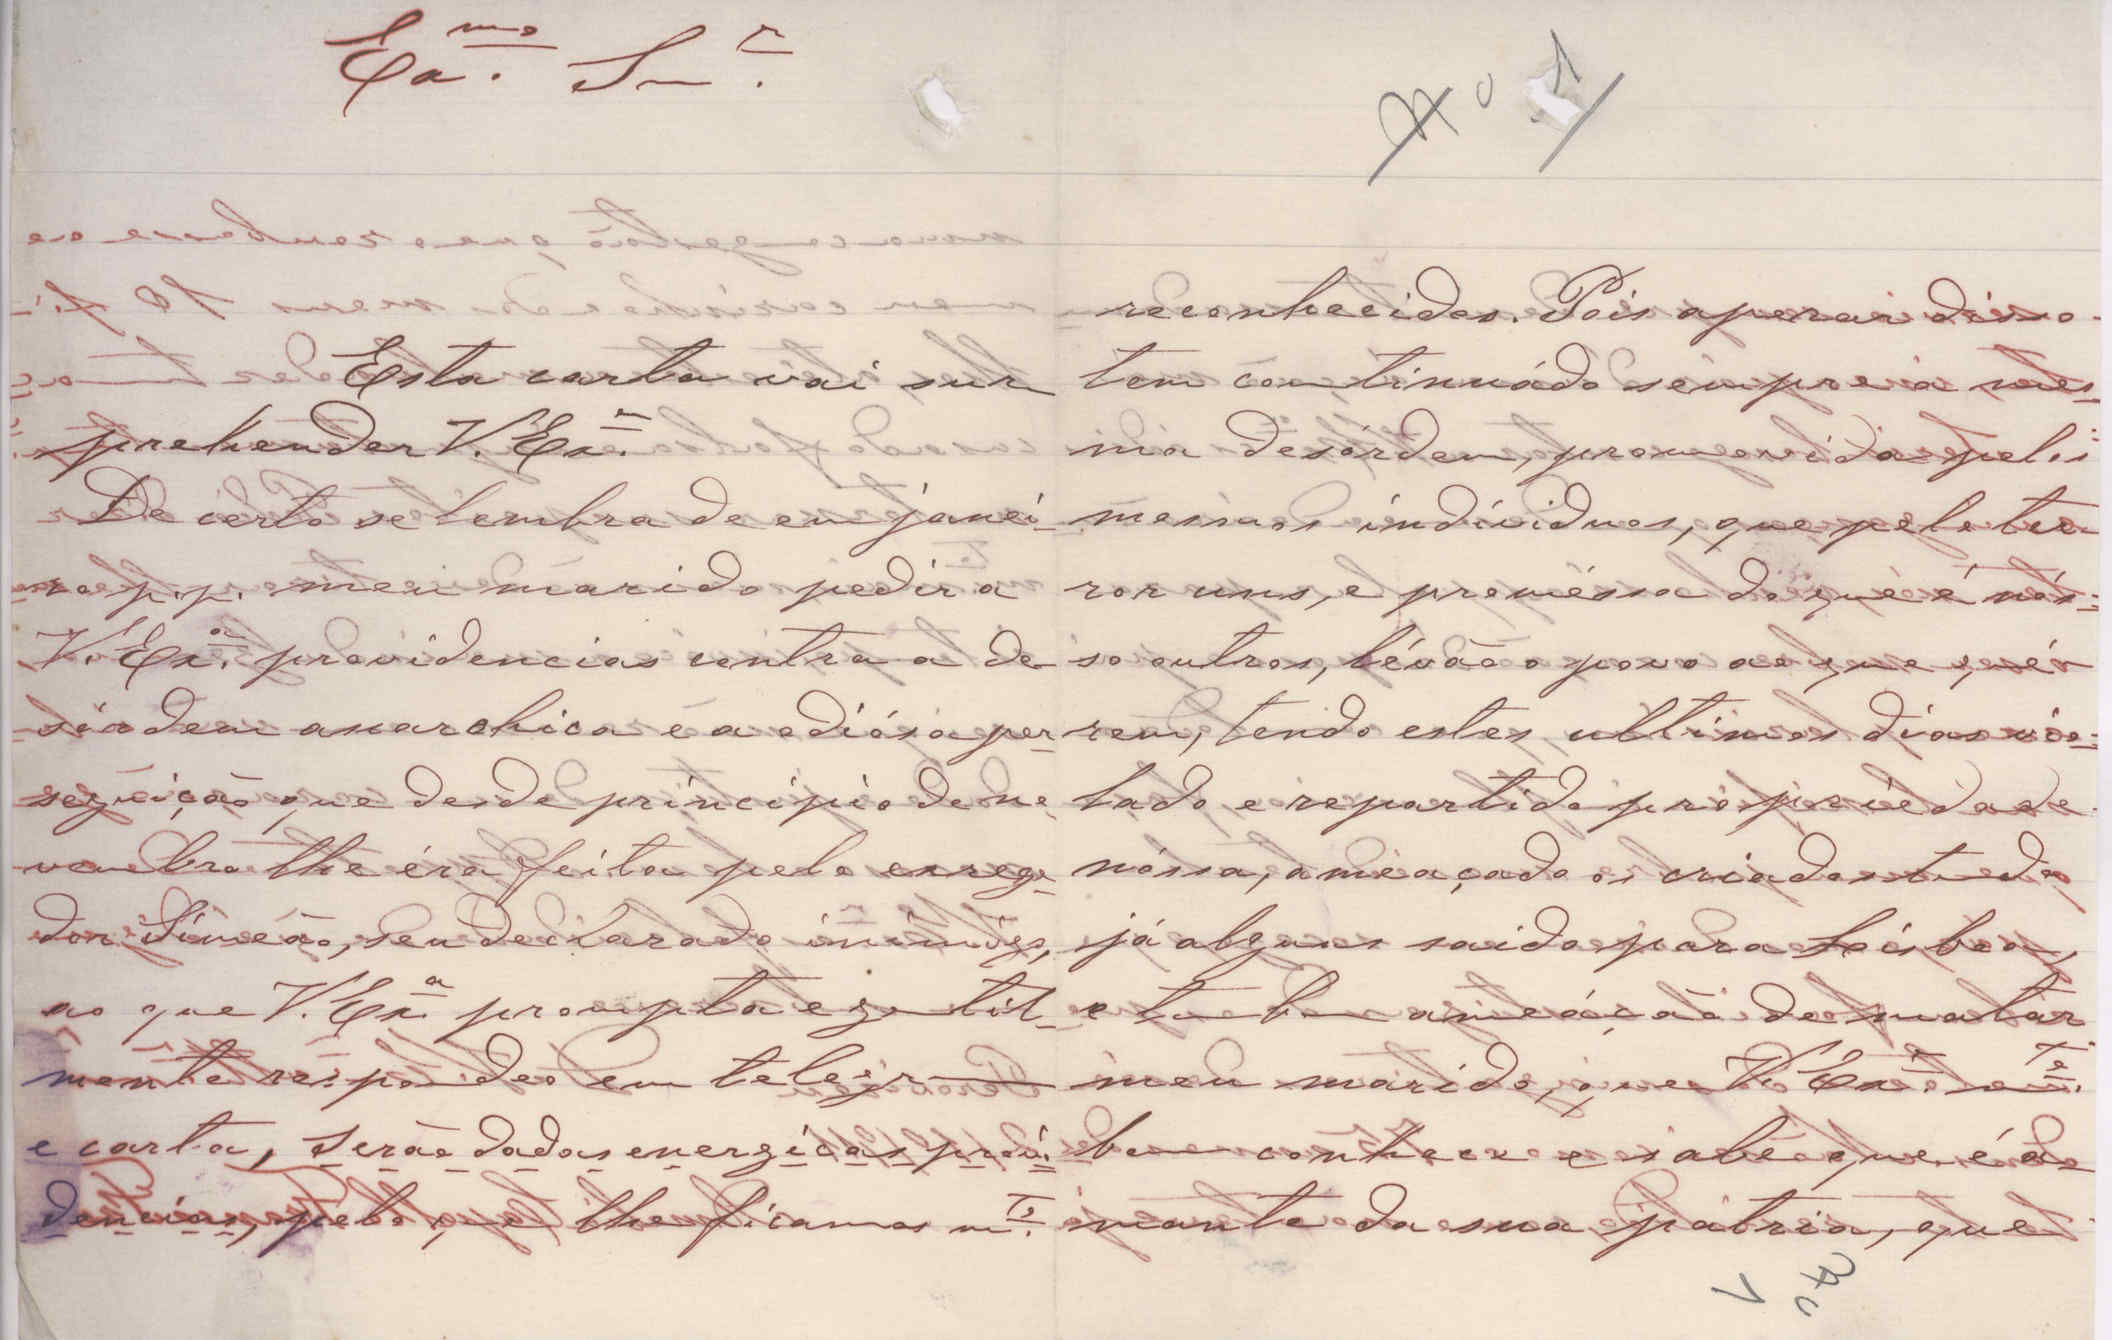 Ex.mo Snr.
Nº 1
Esta carta vai sur
prehender V. Exa.
De certo se lembra de em janei-
ro p.p. meu marido pedir a
V. Exa. providencias contra a de
sórdem anarchica e a odiósa per-
seguição, que desde principio de no-
vembro lhe éra feita pelo enrege-
dor Simeão, seu declarado inimigo,
ao que V. Exa. prompta e gentil-
mente respondeo em telegr
e carta, serão dadas energicas provi-
dencias, pelo que lhe ficamos mto.
reconhecidos. Pois apesar disso
tem continuádo sempre a mes-
ma desórdem, promovida pelos
mesmos individuos, que pelo ter-
ror uns, e proméssa do que é nós-
so outros, lévão o povo ao que qué-
rem, tendo estes ultimos dias vio-
lado e repartido propriédade
nóssa, ameaçado os criados tendo
já alguns saido para Lisboa,
e tambem ameáção de matar
meu marido, que V. Exa. mto.
bem conhece e sabe que é a-
mante da sua pátria, que
Nº 1